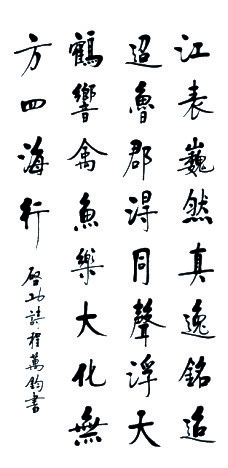 江表巍然真逸銘迢
迢魯郡得同聲浮天
鶴響禽魚樂大化無
方四海行
啓功詩程萬鈞書